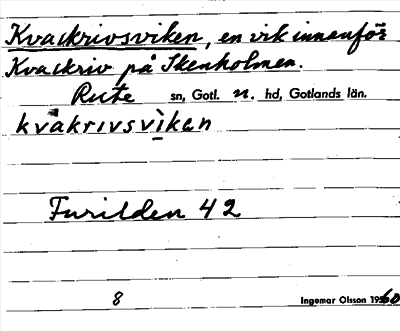 Kvackrivsviken, en vik innanför
Kvackriv på Skenholmen.
Rute sn, Gotl. n. hd, Gotlands län.
kvåkrivsvìkan
Furilden 42
8 Ingemar Olsson 1960